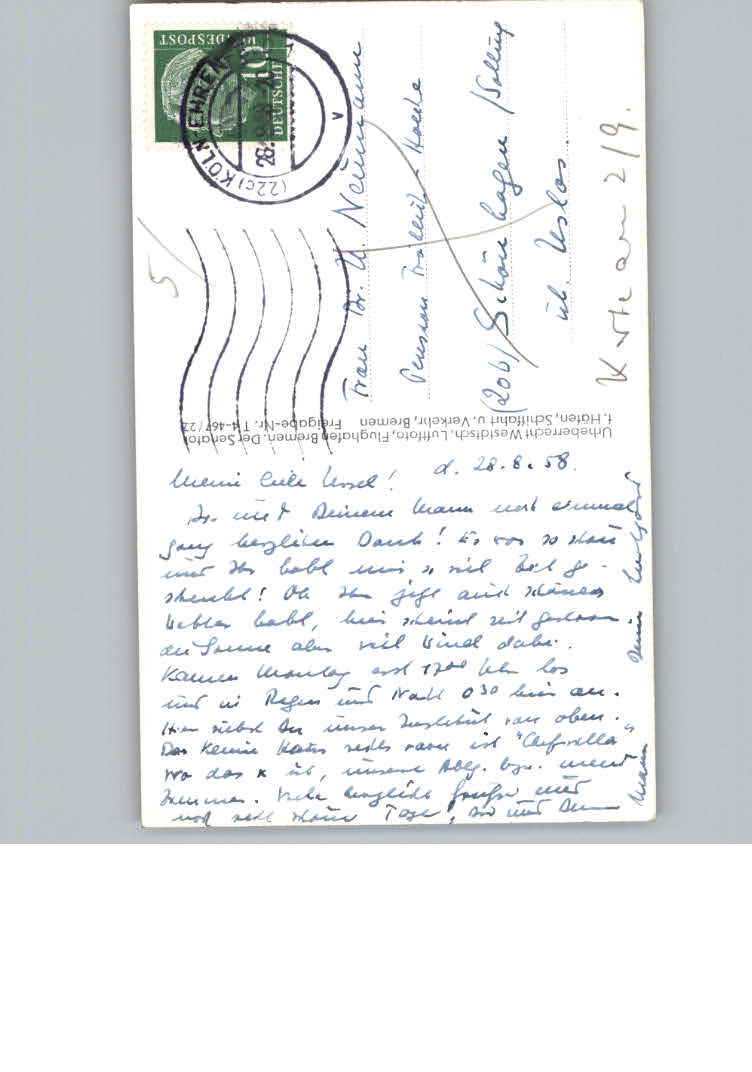 DEUTSCHE BUNDESPOST
10
(22c) KÖLN-EHREN
28.
Frau Dr. U. Neumann
Pension
(20b) Schönhagen / Solling
üb. Uslar.
2/9.
5/
Urheberrecht Westdtsch. Luftfoto, Flughafen Bremen. Der Senator
f. Häfen, Schiffahrt u. Verkehr, Bremen Freigabe-Nr. T 4-467/22
d. 28.8.58.
Meine liebe Ursel!
Dir und Deinem Mann noch einmal
ganz herzlichen Dank! Es war so schön
und Ihr habt mir so viel Zeit ge-
schenkt! Ob Ihr jetzt auch schönes
Wetter habt, hier scheint seit gestern
die Sonne aber viel Wind dabei.
Kamen Montag erst 17 00 Uhr los
und in Regen und Nacht 0 30 hier an.
Hier siehst Du unser Institut von oben.
Das kleine Haus rechts vorn ist "Chefvilla"
wo das x ist, unsere Abtlg. bzw. mein
Zimmer. Viele herzliche Grüße und
noch recht schöne Tage, Dir und Deinem
Mann
Deine